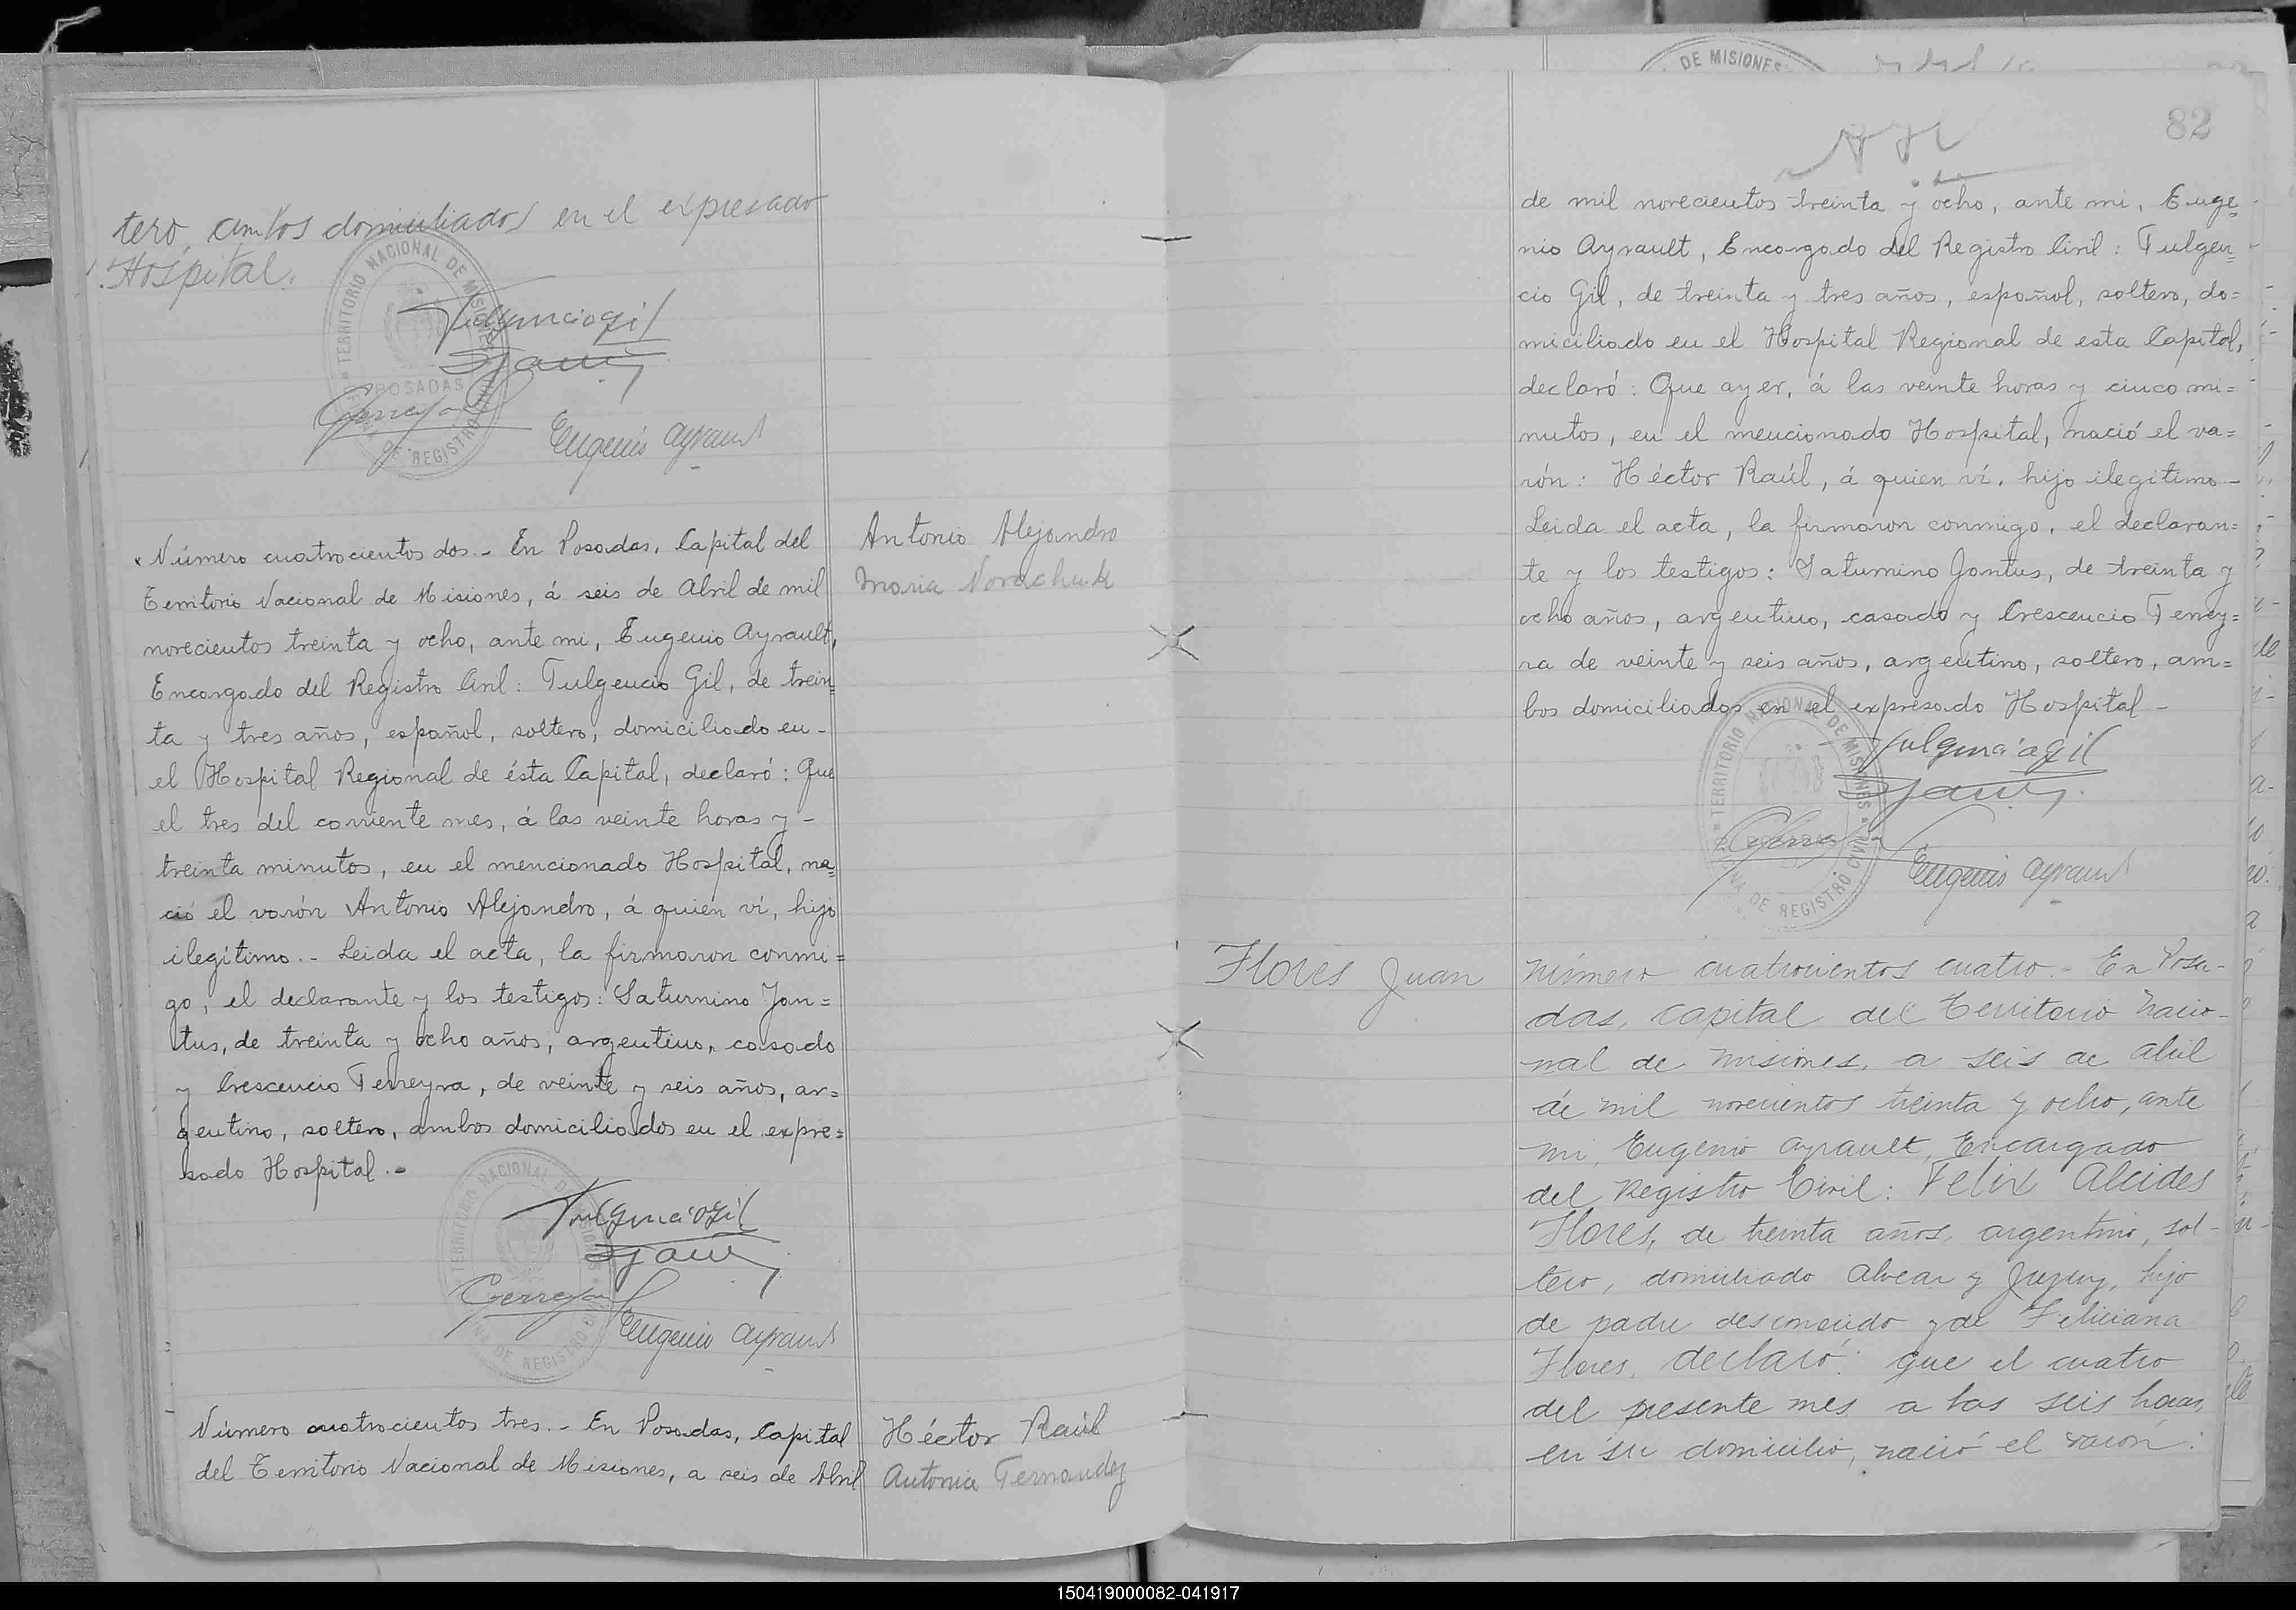 tero, ambos domiciliados en el expresado
Hospital.
TERRITORIO NACIONAL DE MISIONES
POSADAS
DE REGISTRO CIVIL
Fulgencio Gil
Eugenio Ayrault
Número cuatrocientos dos.- En Posadas, Capital del
Territorio Nacional de Misiones, á seis de Abril de mil
novecientos treinta y ocho, ante mi, Eugenio Ayrault,
Encargado del Registro Civil: Fulgencio Gil, de trein=
ta y tres años, español, soltero, domiciliado en-
el Hospital Regional de ésta Capital, declaró: Que
el tres del corriente mes, á las veinte horas y-
treinta minutos, en el mencionado Hospital, na=
ció el varón Antonio Alejandro, á quien ví, hijo
ilegítimo.- Leida el acta, la firmaron conmi=
go, el declarante y los testigos: Saturnino Jan=
tus, de treinta y ocho años, argentino, casado
y Crescencio Ferreyra, de veinte y seis años, ar=
gentino, soltero, ambos domiciliados en el expre=
sado Hospital.-
Antonio Alejandro
Maria
TERRITORIO NACIONAL DE MISIONES
DE REGISTRO CIVIL
Fulgencio Gil
Eugenio Ayrault
Número cuatrocientos tres.- En Posadas, Capital
del Territorio Nacional de Misiones, a seis de Abril
Héctor Raúl
Antonia Fernandez
DE MISIONES
82
de mil novecientos treinta y ocho, ante mi, Euge=
nio Ayrault, Encargado del Registro Civil: Fulgen=
cio Gil, de treinta y tres años, español, soltero, do=
miciliado en el Hospital Regional de esta Capital,
declaró: Que ayer, á las veinte horas y cinco mi=
nutos, en el mencionado Hospital, nació el va=
rón: Héctor Raúl, á quien ví, hijo ilegítimo.-
Leida el acta, la firmaron conmigo, el declaran=
te y los testigos: Saturnino Jantus, de treinta y
ocho años, argentino, casado y Crescencio Ferrey=
ra de veinte y seis años, argentino, soltero, am=
bos domiciliados en el expresado Hospital-
TERRITORIO NACIONAL DE MISIONES
DE REGISTRO CIVIL
Fulgencio Gil
Eugenio Ayrault
Flores Juan
Número cuatrocientos cuatro.- En Posa-
das, Capital del Territorio Nacio-
nal de Misiones, a seis de Abril
de mil novecientos treinta y ocho, ante
mi, Eugenio Ayrault, Encargado
del Registro Civil: Felix Alcides
Flores, de treinta años, argentino, sol-
tero, domiciliado Alvear y Jujuy, hijo
de padre desconocido y de Feliciana
Flores, declaró: que el cuatro
del presente mes a las seis horas,
en su domicilio, nació el varon:
150419000082-041917